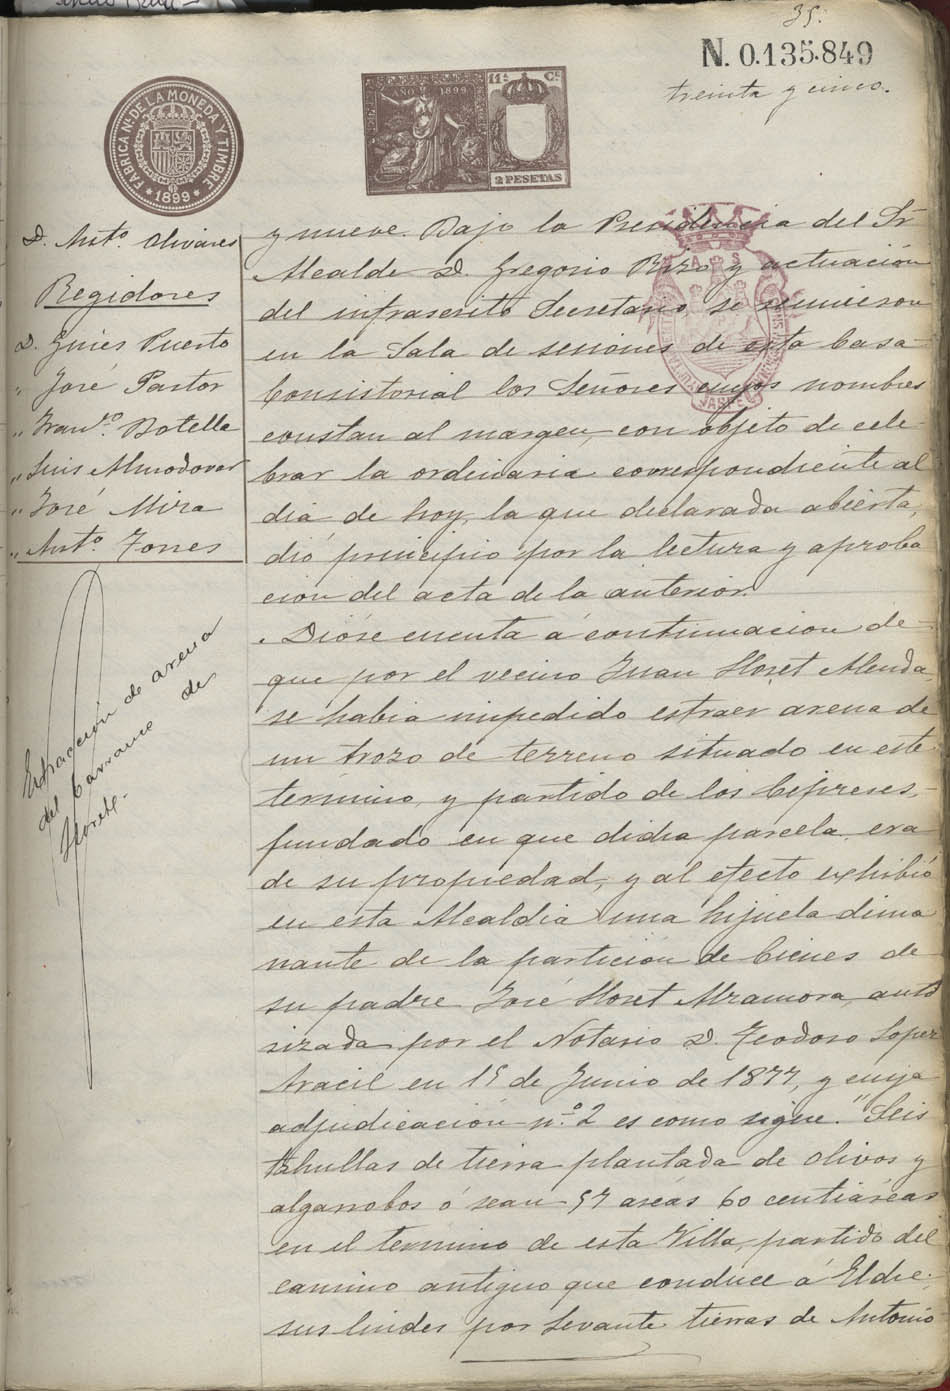 35.
N. 0.135.849
treinta y cinco.
FABRICA Nal DE LA MONEDA Y TIMBRE
* 1899 *
AÑO 1899
11ª Cª
2 PESETAS
D. Antº. Olivares
Regidores
D. Ginés Puerto
" José Pastor
" Franco. Botella
" Luis Almodovar
" José Mira
" Antº. Torres
Extracción de arena
del barranco de
Lloret.
y nueve. Bajo la Presidencia del Sr
Alcalde D. Gregorio Rizo y actuación
del infrascrito Secretario, se reunieron
en la Sala de sesiones de esta Casa
Consistorial los Señores cuyos nombres
constan al margen, con objeto de cele-
brar la ordinaria correspondiente al
dia de hoy, la que declarada abierta,
dió principio por la lectura y aproba
cion del acta de la anterior.
Dióse cuenta á continuacion de
que por el vecino Juan Lloret Alenda,
se habia impedido estraer arena de
un trozo de terreno situado en este
término, y partido de los Cipreses,
fundado en que dicha parcela era
de su propiedad, y al efecto exhibió
en esta Alcaldia una hijuela dima
nante de la partición de bienes de
su padre José Lloret Miramora, auto
rizada por el Notario D. Teodoro Lopez
Aracil en 15 de Junio de 1877, y cuya
adjudicación nº 2 es como sigue. "Seis
tahullas de tierra plantada de olivos y
algarrobos ó sean 57 areas 60 centiáreas
en el termino de esta Villa, partido del
camino antiguo que conduce á Elche:
sus lindes por Levante tierras de Antonio